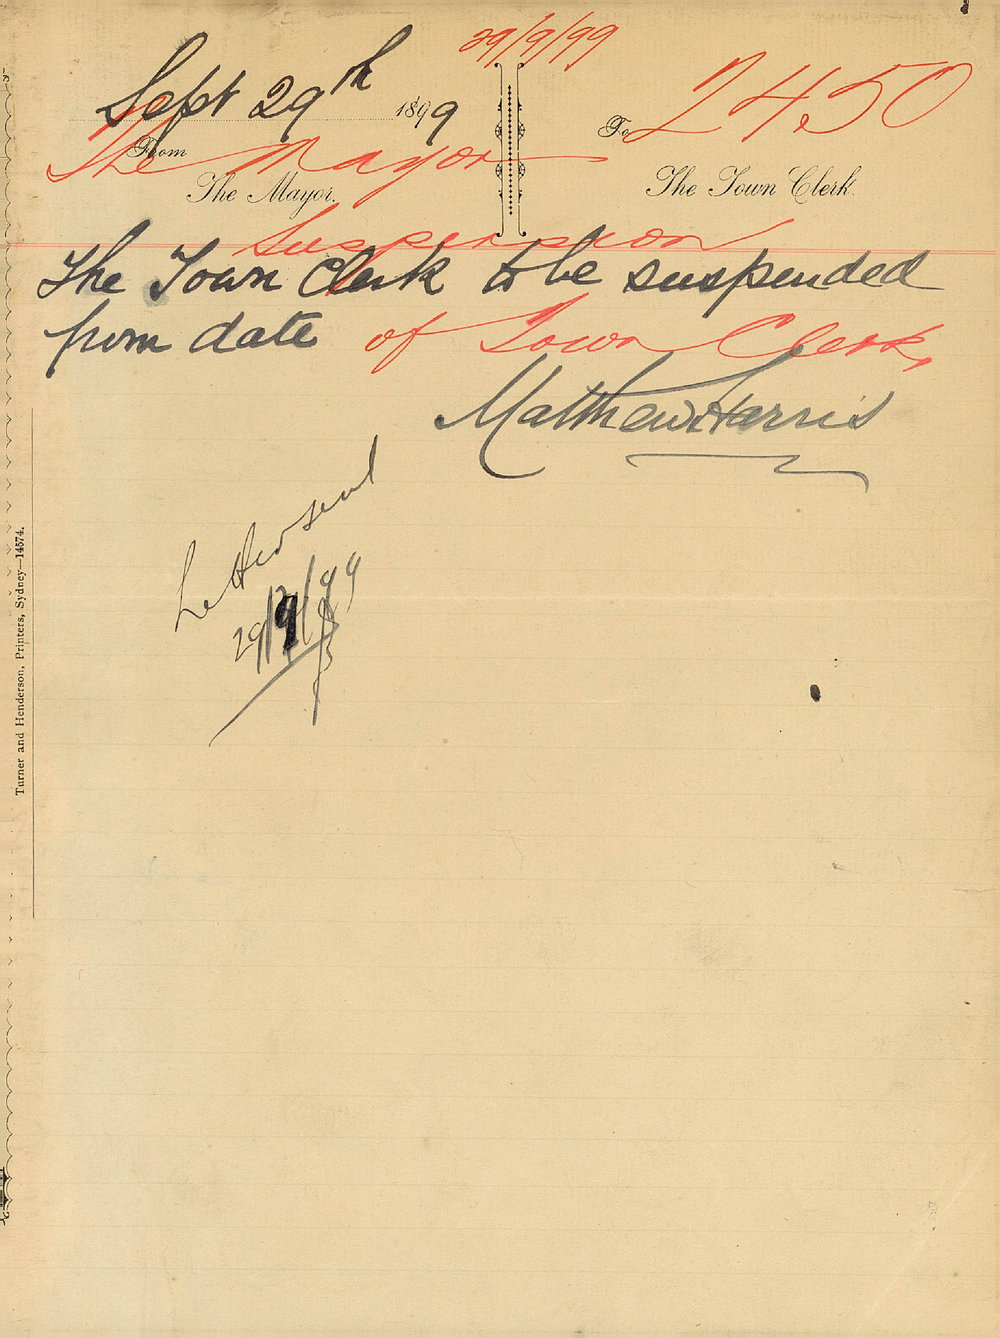 29/9/99
Sept 29th 1899
2450
From
To
The Mayor
The Mayor.
The Town Clerk.
Suspension
The Town Clerk to be suspended
from date
of Town Clerk,
Matthew Harris
Letter sent
29/9/99
Turner and Henderson, Printers, Sydney—14574.